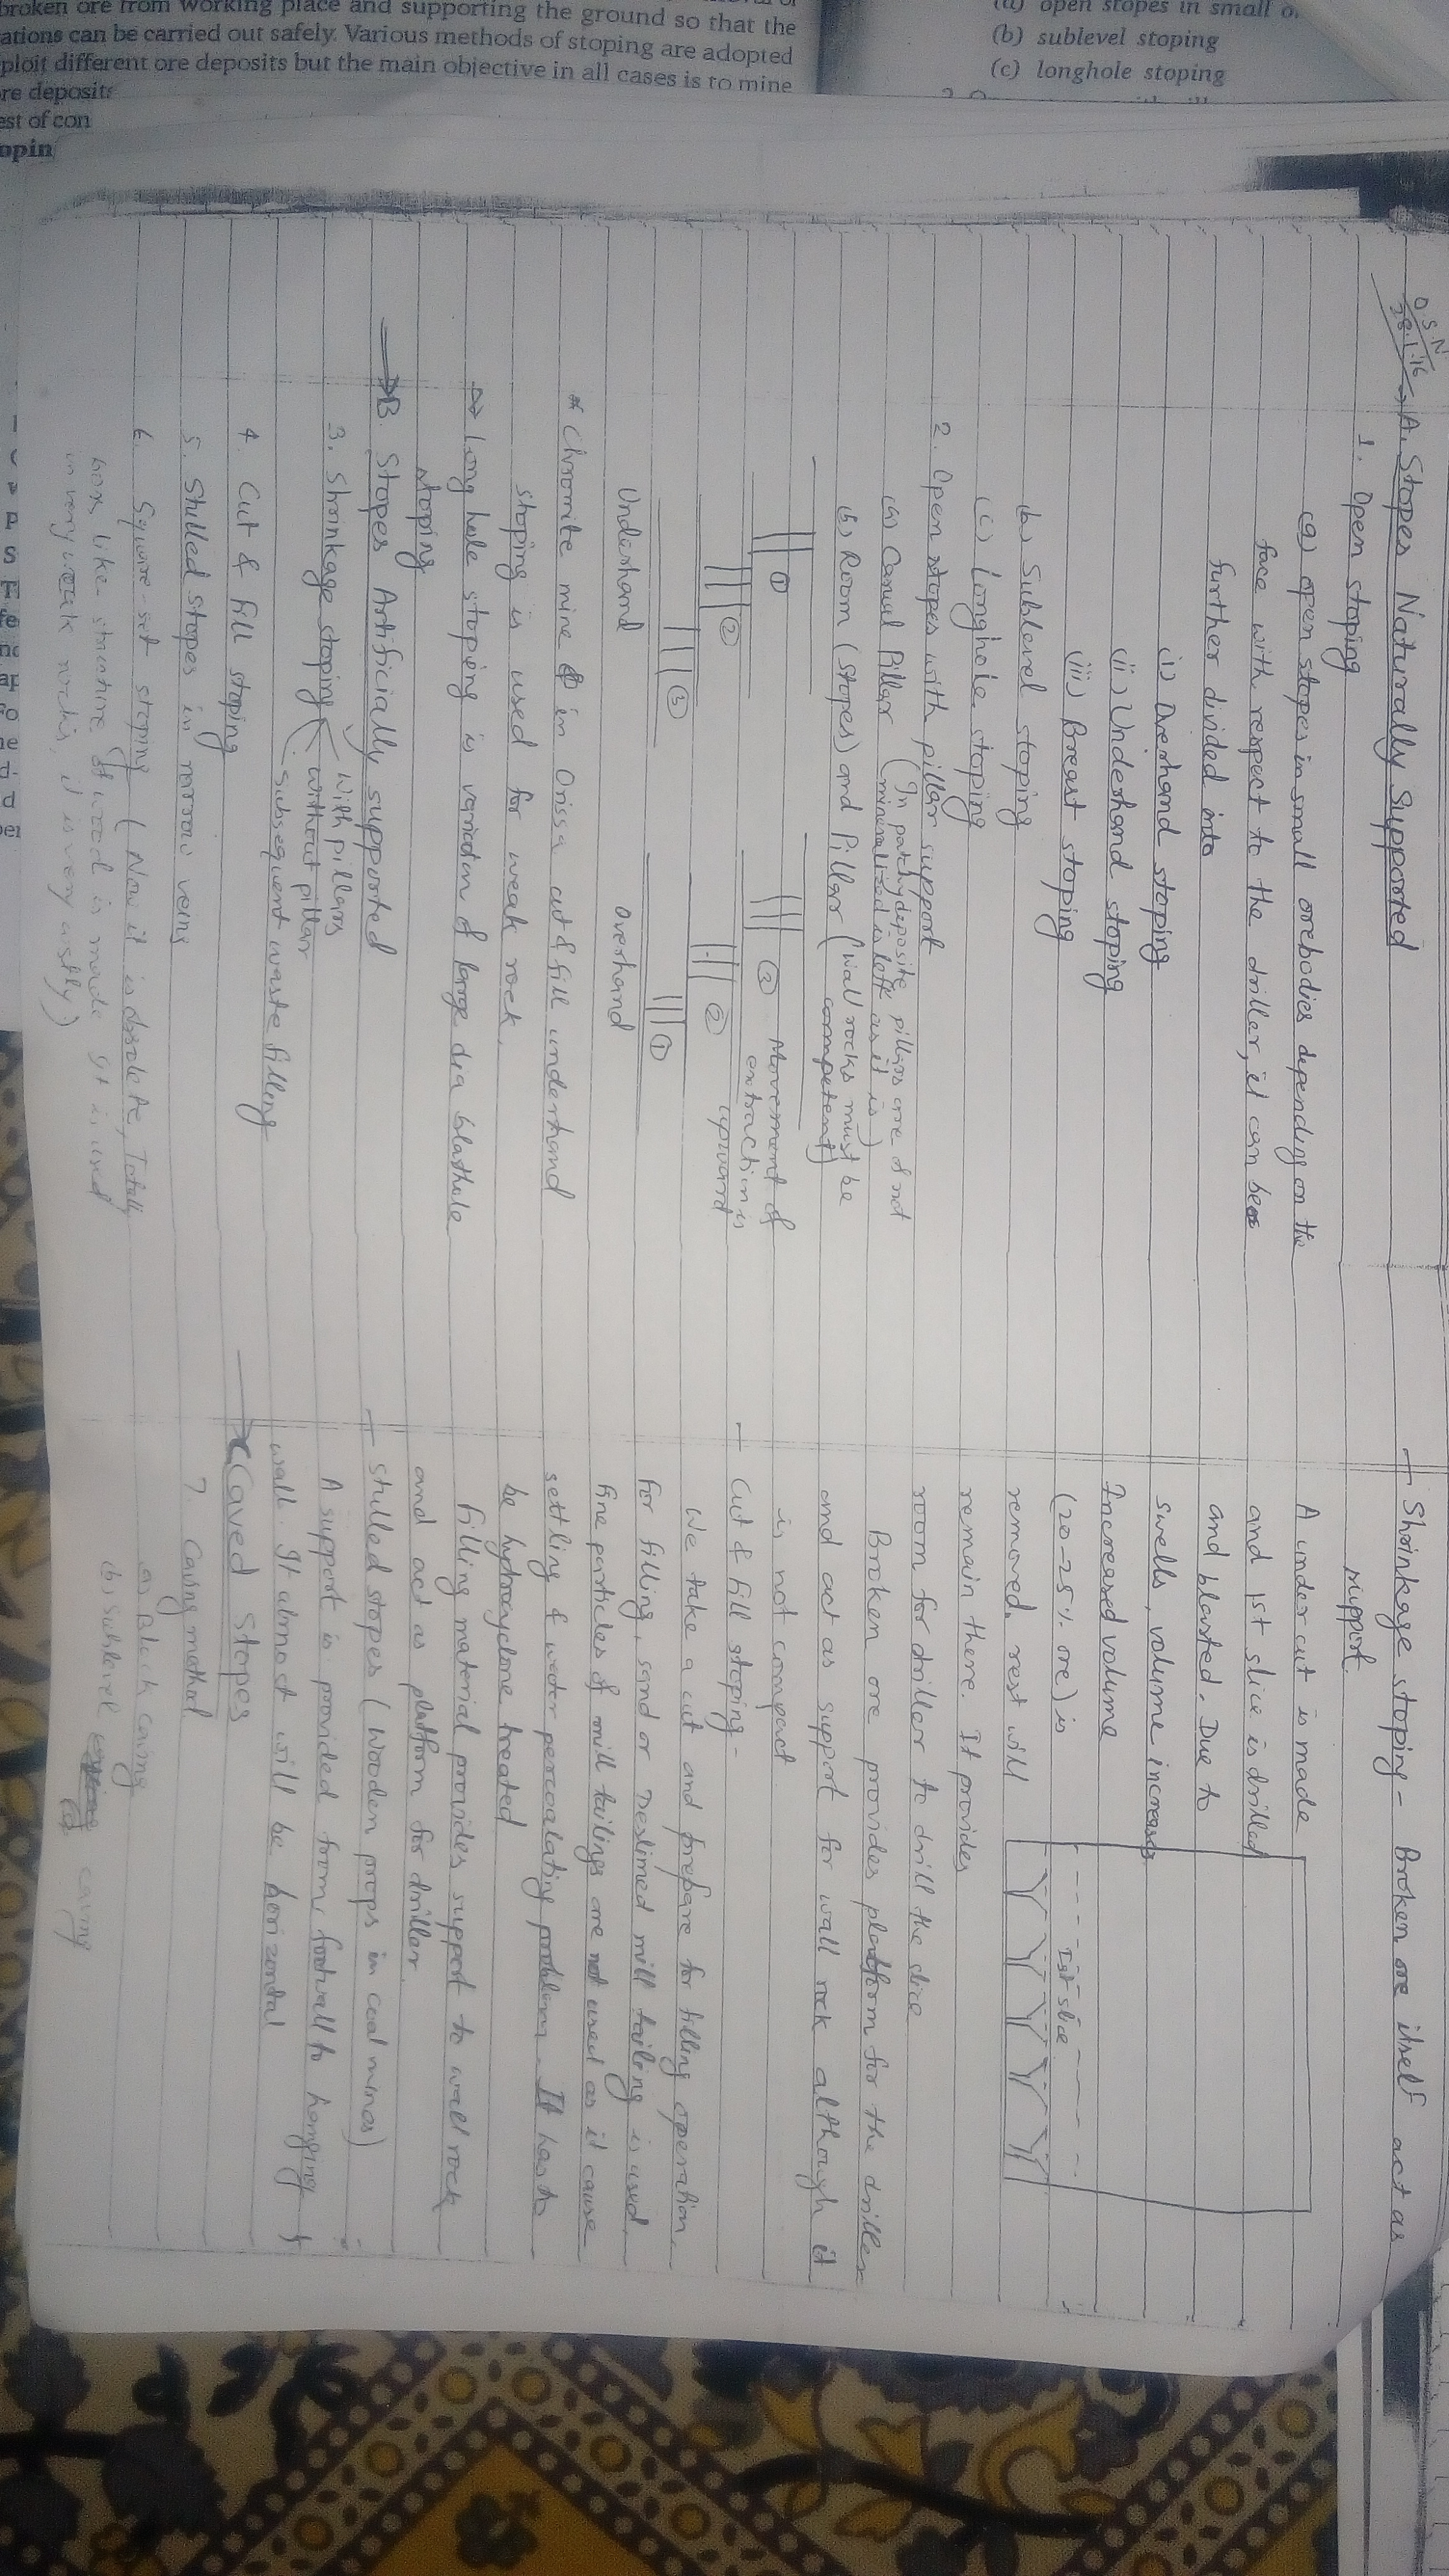 O.S.N
28.1.16
A. Stopes Naturally Supported
1. Open stoping
(a) open stopes in small orebodies depending on the
face with respect to the driller, it can be
further divided into
(i) Overhand stoping
(ii) Underhand stoping
(iii) Breast stoping
(b) Sublevel stoping
(c) Longhole stoping
2. Open stopes with pillar support
(a) Casual Pillar (In patchy deposite, pillars are of not
mineralized is left as it is)
(b) Room (stopes) and Pillar (wall rocks must be
competent)
① ② ③
Underhand
③ ② ①
Overhand
Movement of
extraction is
upward
* Chromite mine in Orissa cut & fill underhand
stoping is used for weak rock.
⇒ Long hole stoping is variation of large dia blasthole
stoping
B. Stopes Artificially supported
3. Shrinkage stoping
With pillars
without pillar
Subsequent waste filling
4. Cut & fill stoping
5. Stulled stopes in narrow veins
6. Square-set stoping (Now it is obsolete, Totally
box like structure of wood is made It is used
in very weak rocks, it is very costly)
Shrinkage stoping - Broken ore itself act as
support.
A under cut is made
and 1st slice is drilled
and blasted. Due to
swells, volume increases
Increased volume
(20-25% ore) is
removed. rest will
remain there. It provides
room for driller to drill the slice
Ist slice
Broken ore provides platform for the driller
and act as support for wall rock although it
is not compact
Cut & fill stoping -
We take a cut and prepare for filling operation.
For filling, sand or Deslimed mill tailing is used.
Fine particles of mill tailings are not used as it cause
settling & water percoalating problem. It has to
be hydrocyclone treated
Filling material provides support to wall rock
and act as platform for driller.
Stulled stopes (Wooden props in coal mines)
A support is provided from footwall to hanging
wall. It almost will be horizontal
C Caved Stopes
7. Caving method
a) Block caving
(b) Sublevel caving
(a) open stopes in small
(b) sublevel stoping
(c) longhole stoping
broken ore from working place and supporting the ground so that the
ations can be carried out safely. Various methods of stoping are adopted
ploit different ore deposits but the main objective in all cases is to mine
re deposits
est of con
opin